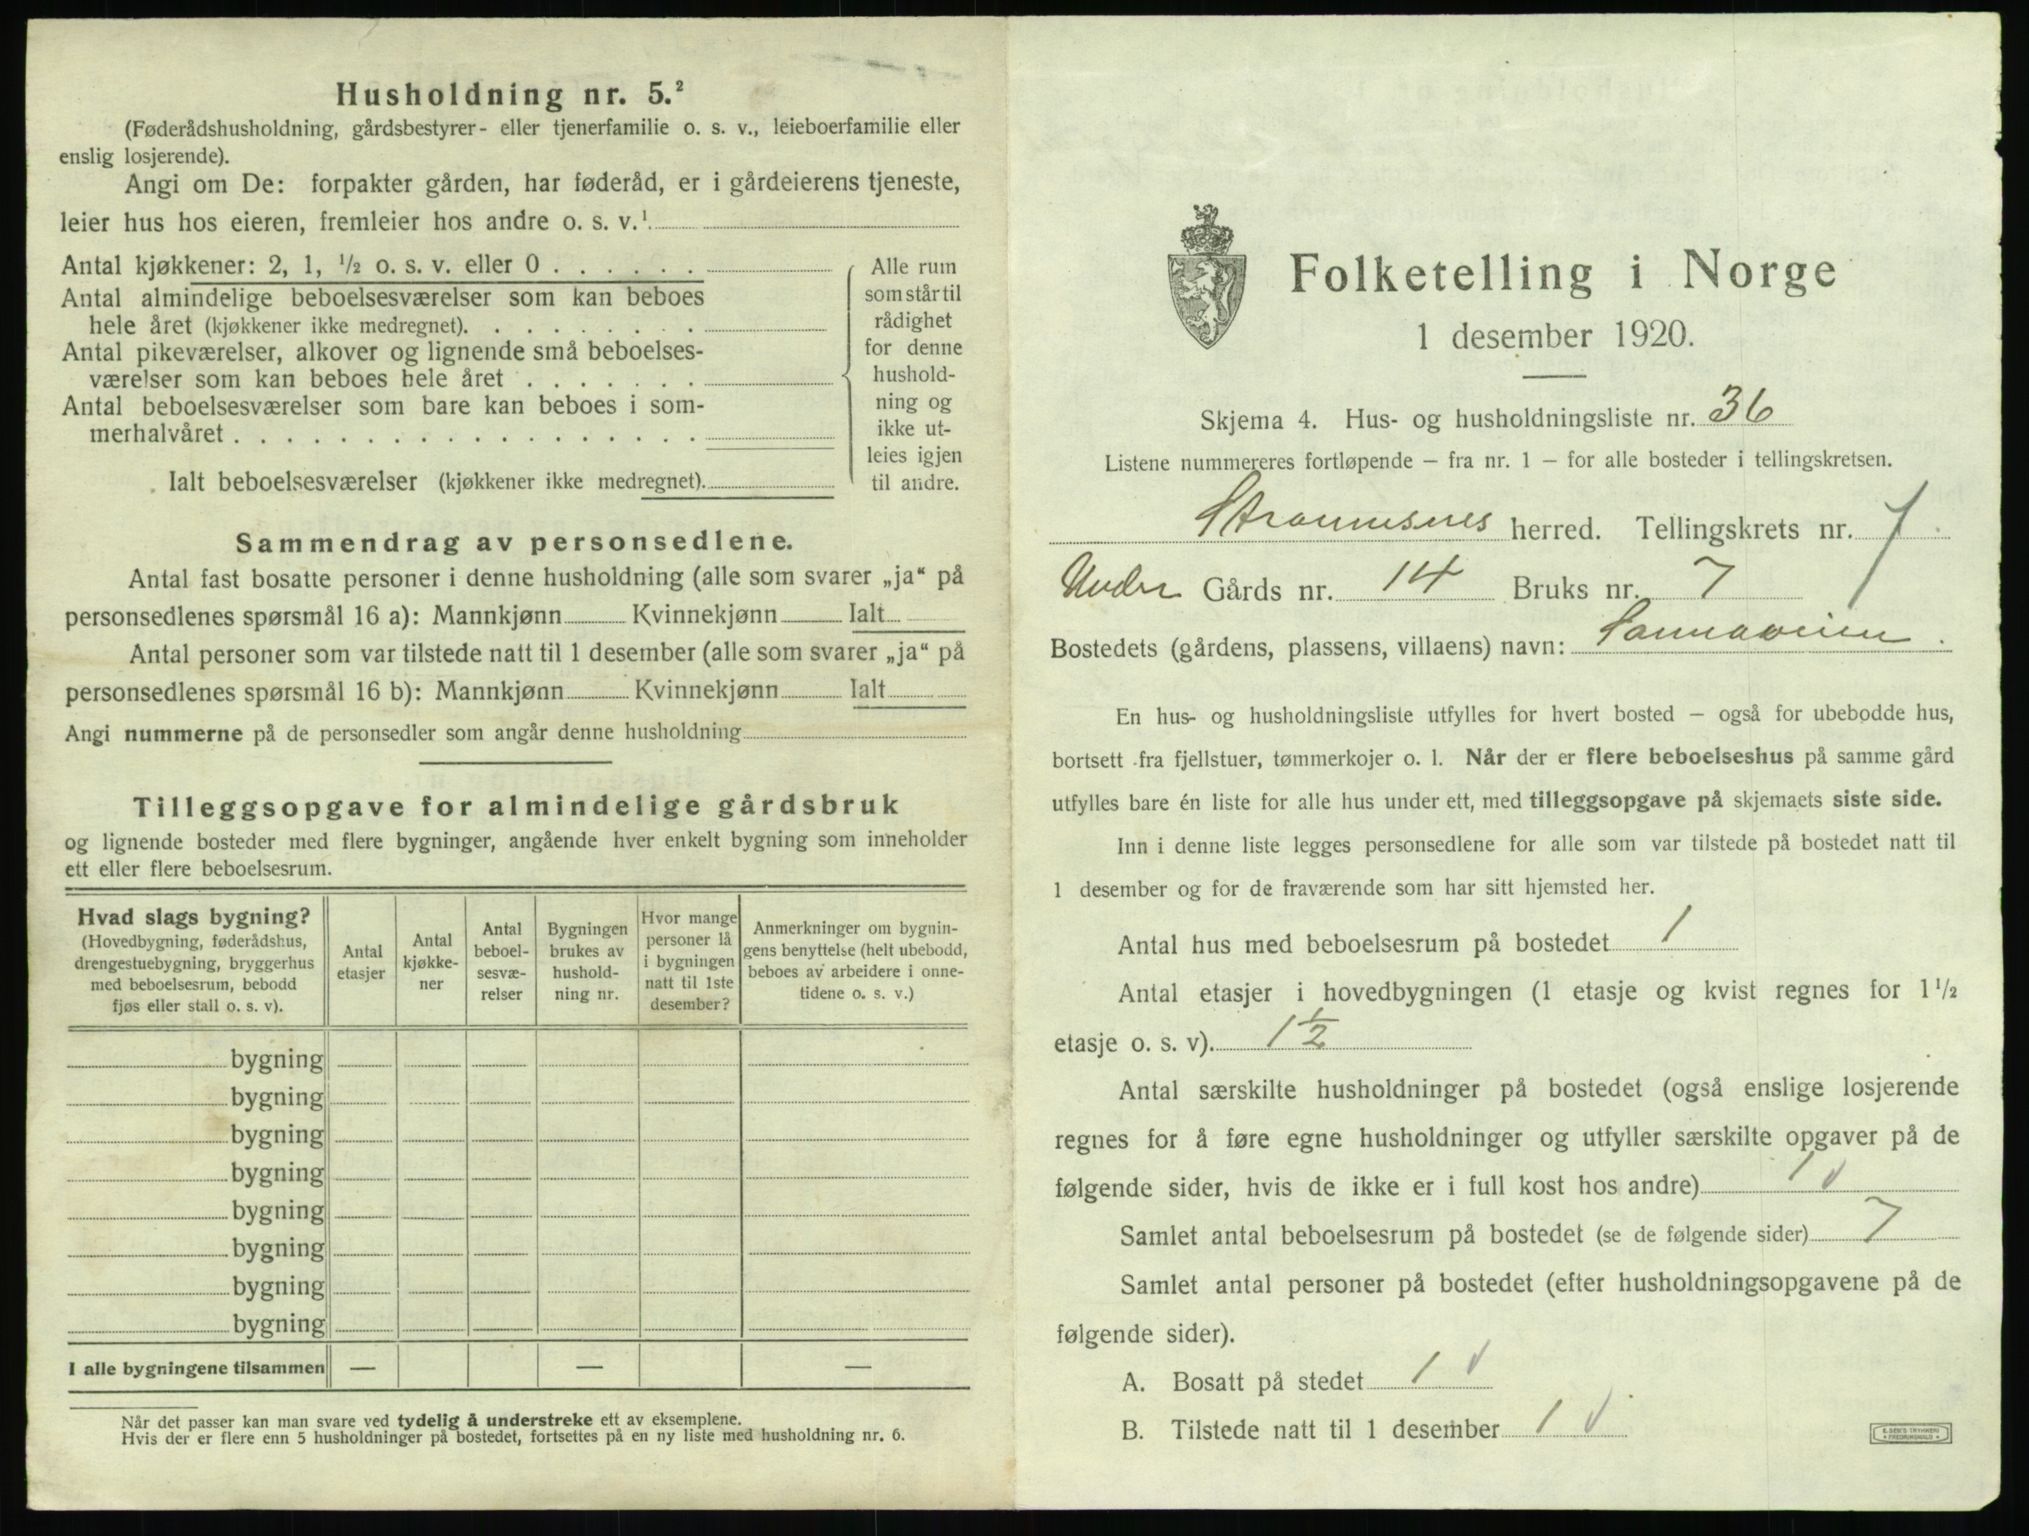 Husholdning nr. 5.²
(Føderådshusholdning, gårdsbestyrer- eller tjenerfamilie o. s. v., leieboerfamilie eller
enslig losjerende).
Angi om De: forpakter gården, har føderåd, er i gårdeierens tjeneste,
leier hus hos eieren, fremleier hos andre o. s. v.¹
Antal kjøkkener: 2, 1, ½ o. s. v. eller 0 . . . . . .
Antal almindelige beboelsesværelser som kan beboes
hele året (kjøkkener ikke medregnet). . . . . . . . .
Antal pikeværelser, alkover og lignende små beboelses-
værelser som kan beboes hele året . . . . . . .
Antal beboelsesværelser som bare kan beboes i som-
merhalvåret . . . . . . . . . . . . . . . . . .
Ialt beboelsesværelser (kjøkkener ikke medregnet).
Alle rum
som står til
rådighet
for denne
hushold-
ning og
ikke ut-
leies igjen
til andre.
Sammendrag av personsedlene.
Antal fast bosatte personer i denne husholdning (alle som svarer „ja“ på
personsedlenes spørsmål 16 a): Mannkjønn Kvinnekjønn Ialt
Antal personer som var tilstede natt til 1 desember (alle som svarer „ja“ på
personsedlenes spørsmål 16 b): Mannkjønn Kvinnekjønn Ialt
Angi nummerne på de personsedler som angår denne husholdning
Tilleggsopgave for almindelige gårdsbruk
og lignende bosteder med flere bygninger, angående hver enkelt bygning som inneholder
ett eller flere beboelsesrum.
Hvad slags bygning?
(Hovedbygning, føderådshus,
drengestuebygning, bryggerhus
med beboelsesrum, bebodd
fjøs eller stall o. s. v).
Antal
etasjer
Antal
kjøkke-
ner
Antal
beboel-
sesvæ-
relser
Bygningen
brukes av
hushold-
ning nr.
Hvor mange
personer lå
i bygningen
natt til 1ste
desember?
Anmerkninger om bygnin-
gens benyttelse (helt ubebodd,
beboes av arbeidere i onne-
tidene o. s. v.)
bygning
bygning
bygning
bygning
bygning
bygning
bygning
bygning
I alle bygningene tilsammen — — —
Når det passer kan man svare ved tydelig å understreke ett av eksemplene.
Hvis der er flere enn 5 husholdninger på bostedet, fortsettes på en ny liste med husholdning nr. 6.
Folketelling i Norge
1 desember 1920.
Skjema 4. Hus- og husholdningsliste nr. 36
Listene nummereres fortløpende – fra nr. 1 – for alle bosteder i tellingskretsen.
Straumsnes herred. Tellingskrets nr. 7
Under Gårds nr. 14 Bruks nr. 7
Bostedets (gårdens, plassens, villaens) navn:
En hus- og husholdningsliste utfylles for hvert bosted – også for ubebodde hus,
bortsett fra fjellstuer, tømmerkojer o. l. Når der er flere beboelseshus på samme gård
utfylles bare én liste for alle hus under ett, med tilleggsopgave på skjemaets siste side.
Inn i denne liste legges personsedlene for alle som var tilstede på bostedet natt til
1 desember og for de fraværende som har sitt hjemsted her.
Antal hus med beboelsesrum på bostedet 1
Antal etasjer i hovedbygningen (1 etasje og kvist regnes for 1½
etasje o. s. v). 1½
Antal særskilte husholdninger på bostedet (også enslige losjerende
regnes for å føre egne husholdninger og utfyller særskilte opgaver på de
følgende sider, hvis de ikke er i full kost hos andre) 1 √
Samlet antal beboelsesrum på bostedet (se de følgende sider) 7
Samlet antal personer på bostedet (efter husholdningsopgavene på de
følgende sider).
A. Bosatt på stedet 1 √
B. Tilstede natt til 1 desember 1 √
E. SEM'S TRYKKERI
FREDRIKSHALD